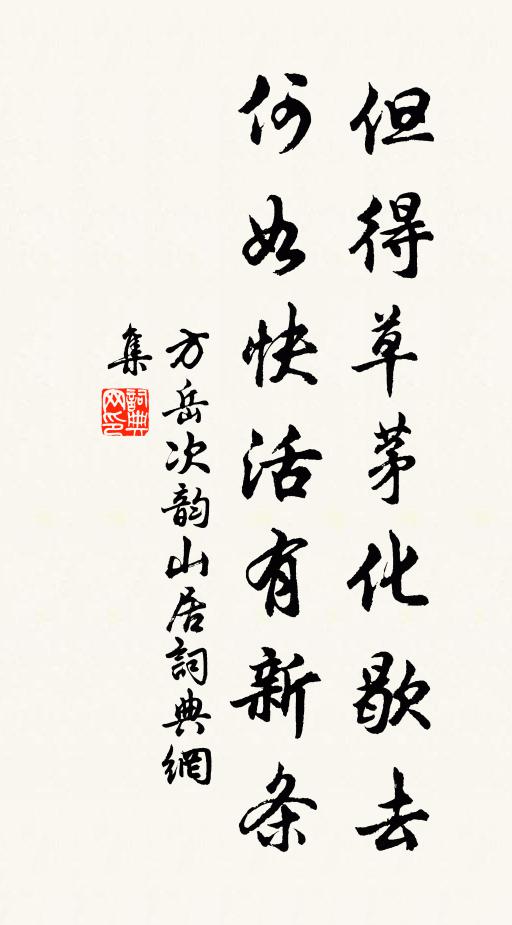 但得草茅化歇去
何如快活有新条
方岳次韵山居詞典網
集
詞典
网印